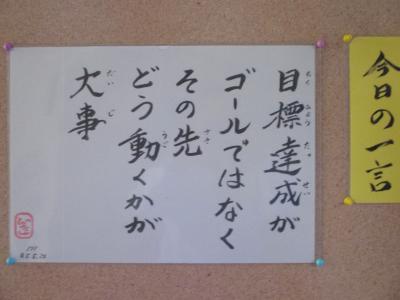 今日の一言
目標達成が
ゴールではなく
その先
どう動くかが
大事